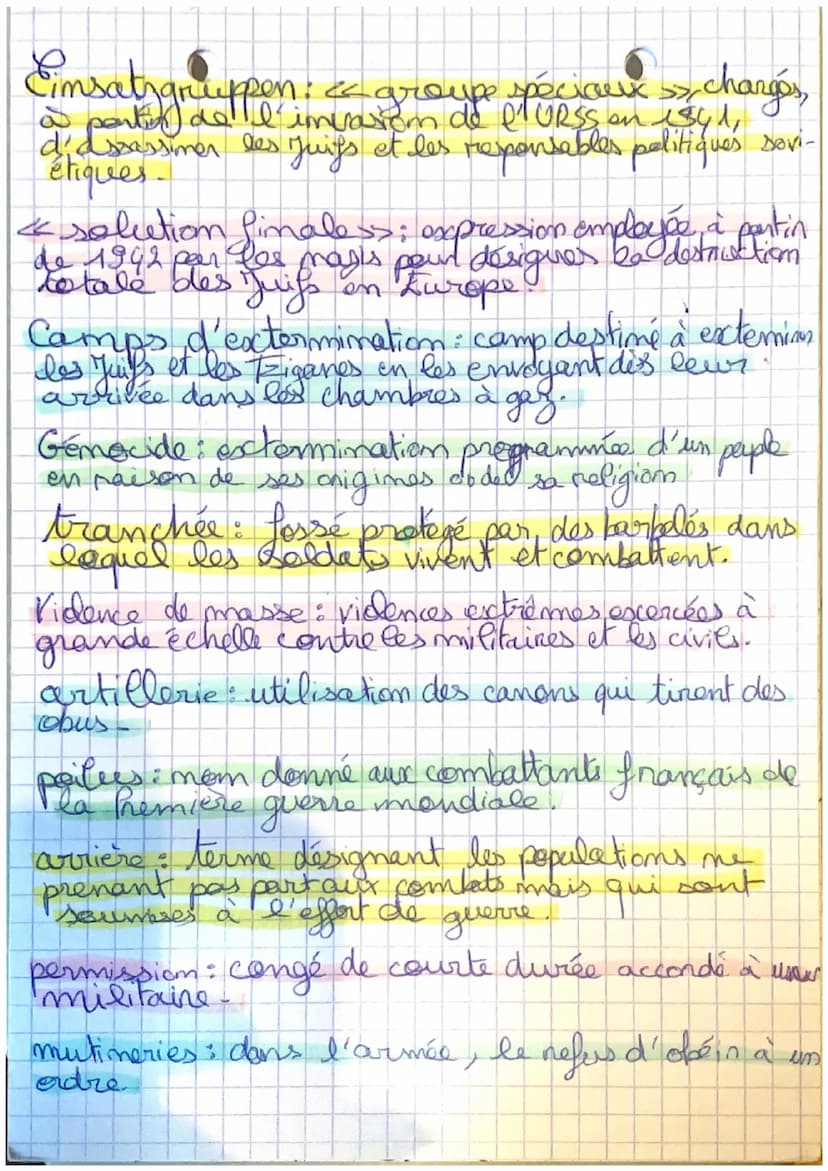 Einsatzgruppen : « groupe spéciaux », chargés,
à partir de l'invasion de l'URSS en 1941,
d'assassiner les Juifs et les responsables politiques sovi-
étiques.
« solution finale » : expression employée, à partir
de 1942 par les nazis pour désigner la destruction
totale des Juifs en Europe.
Camps d'extermination : camp destiné à exterminer
les Juifs et les Tziganes en les envoyant dès leur
arrivée dans les chambres à gaz.
Génocide : extermination programmée d'un peuple
en raison de ses origines de sa religion
tranchée : fossé protégé par des barbelés dans
lequel les soldats vivent et combattent.
Violence de masse : violences extrêmes, excercées à
grande échelle contre les militaires et les civils.
artillerie : utilisation des canons qui tirent des
obus.
poilus : nom donné aux combattants français de
la Première guerre mondiale.
arrière : terme désignant les populations ne
prenant pas part aux combats mais qui sont
soumises à l'effort de guerre.
permission : congé de courte durée accordé à
militaire.
mutineries : dans l'armée, le refus d'obéir à un
ordre